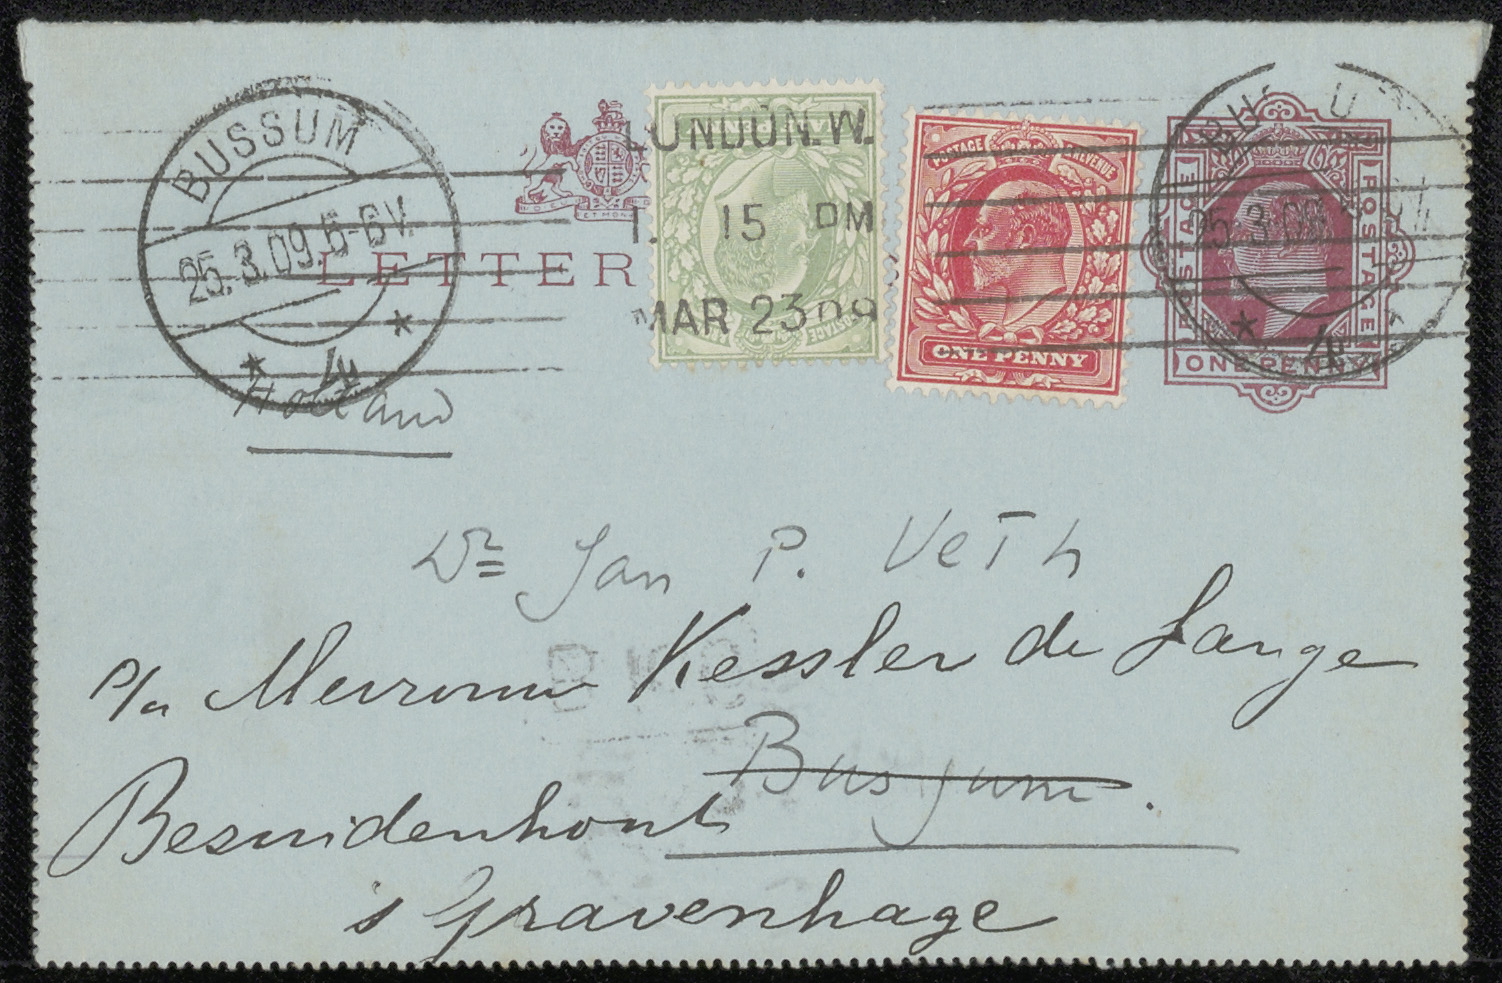 BUSSUM
25.3.09.5-6V.
4
LETTER
LONDON.W.
15 PM
MAR 23 09
POSTAGE
POSTAGE & REVENUE
ONE PENNY
POSTAGE
POSTAGE
ONE PENNY
25.3.09
4
Holland
Dr Jan P. Veth
p/a Mevrouw Kessler de Lange
Bussum.
Bezuidenhout
's Gravenhage